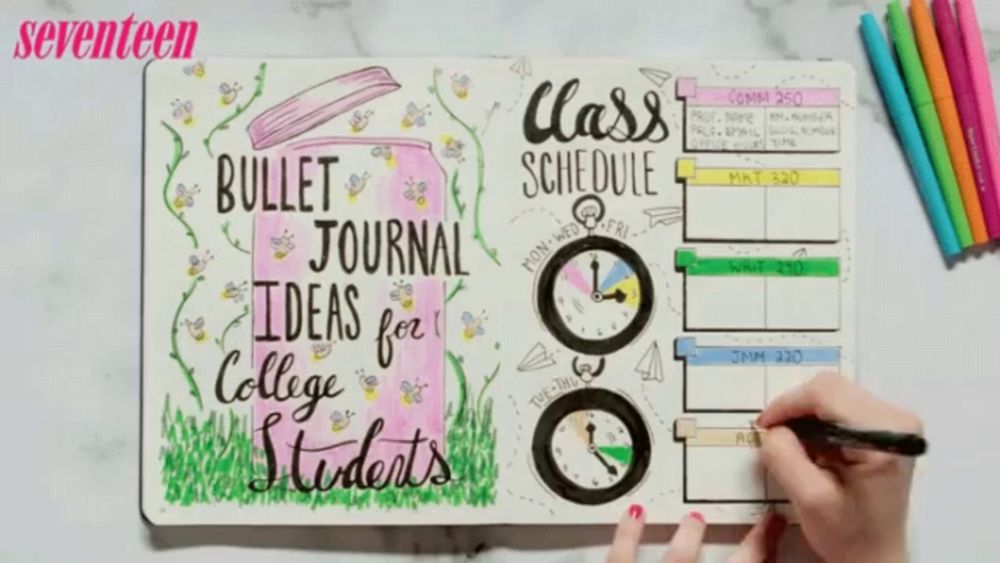 seventeen
BULLET
JOURNAL
IDEAS for
College
Students
Class
SCHEDULE
MON·WED·FRI
TUE·THU
COMM 250
PROF. NAME
PROF. EMAIL
OFFICE HOURS
RM. NUMBER
BLDG. NUMBER
TIME
MKT 320
WRIT 290
JMM 220